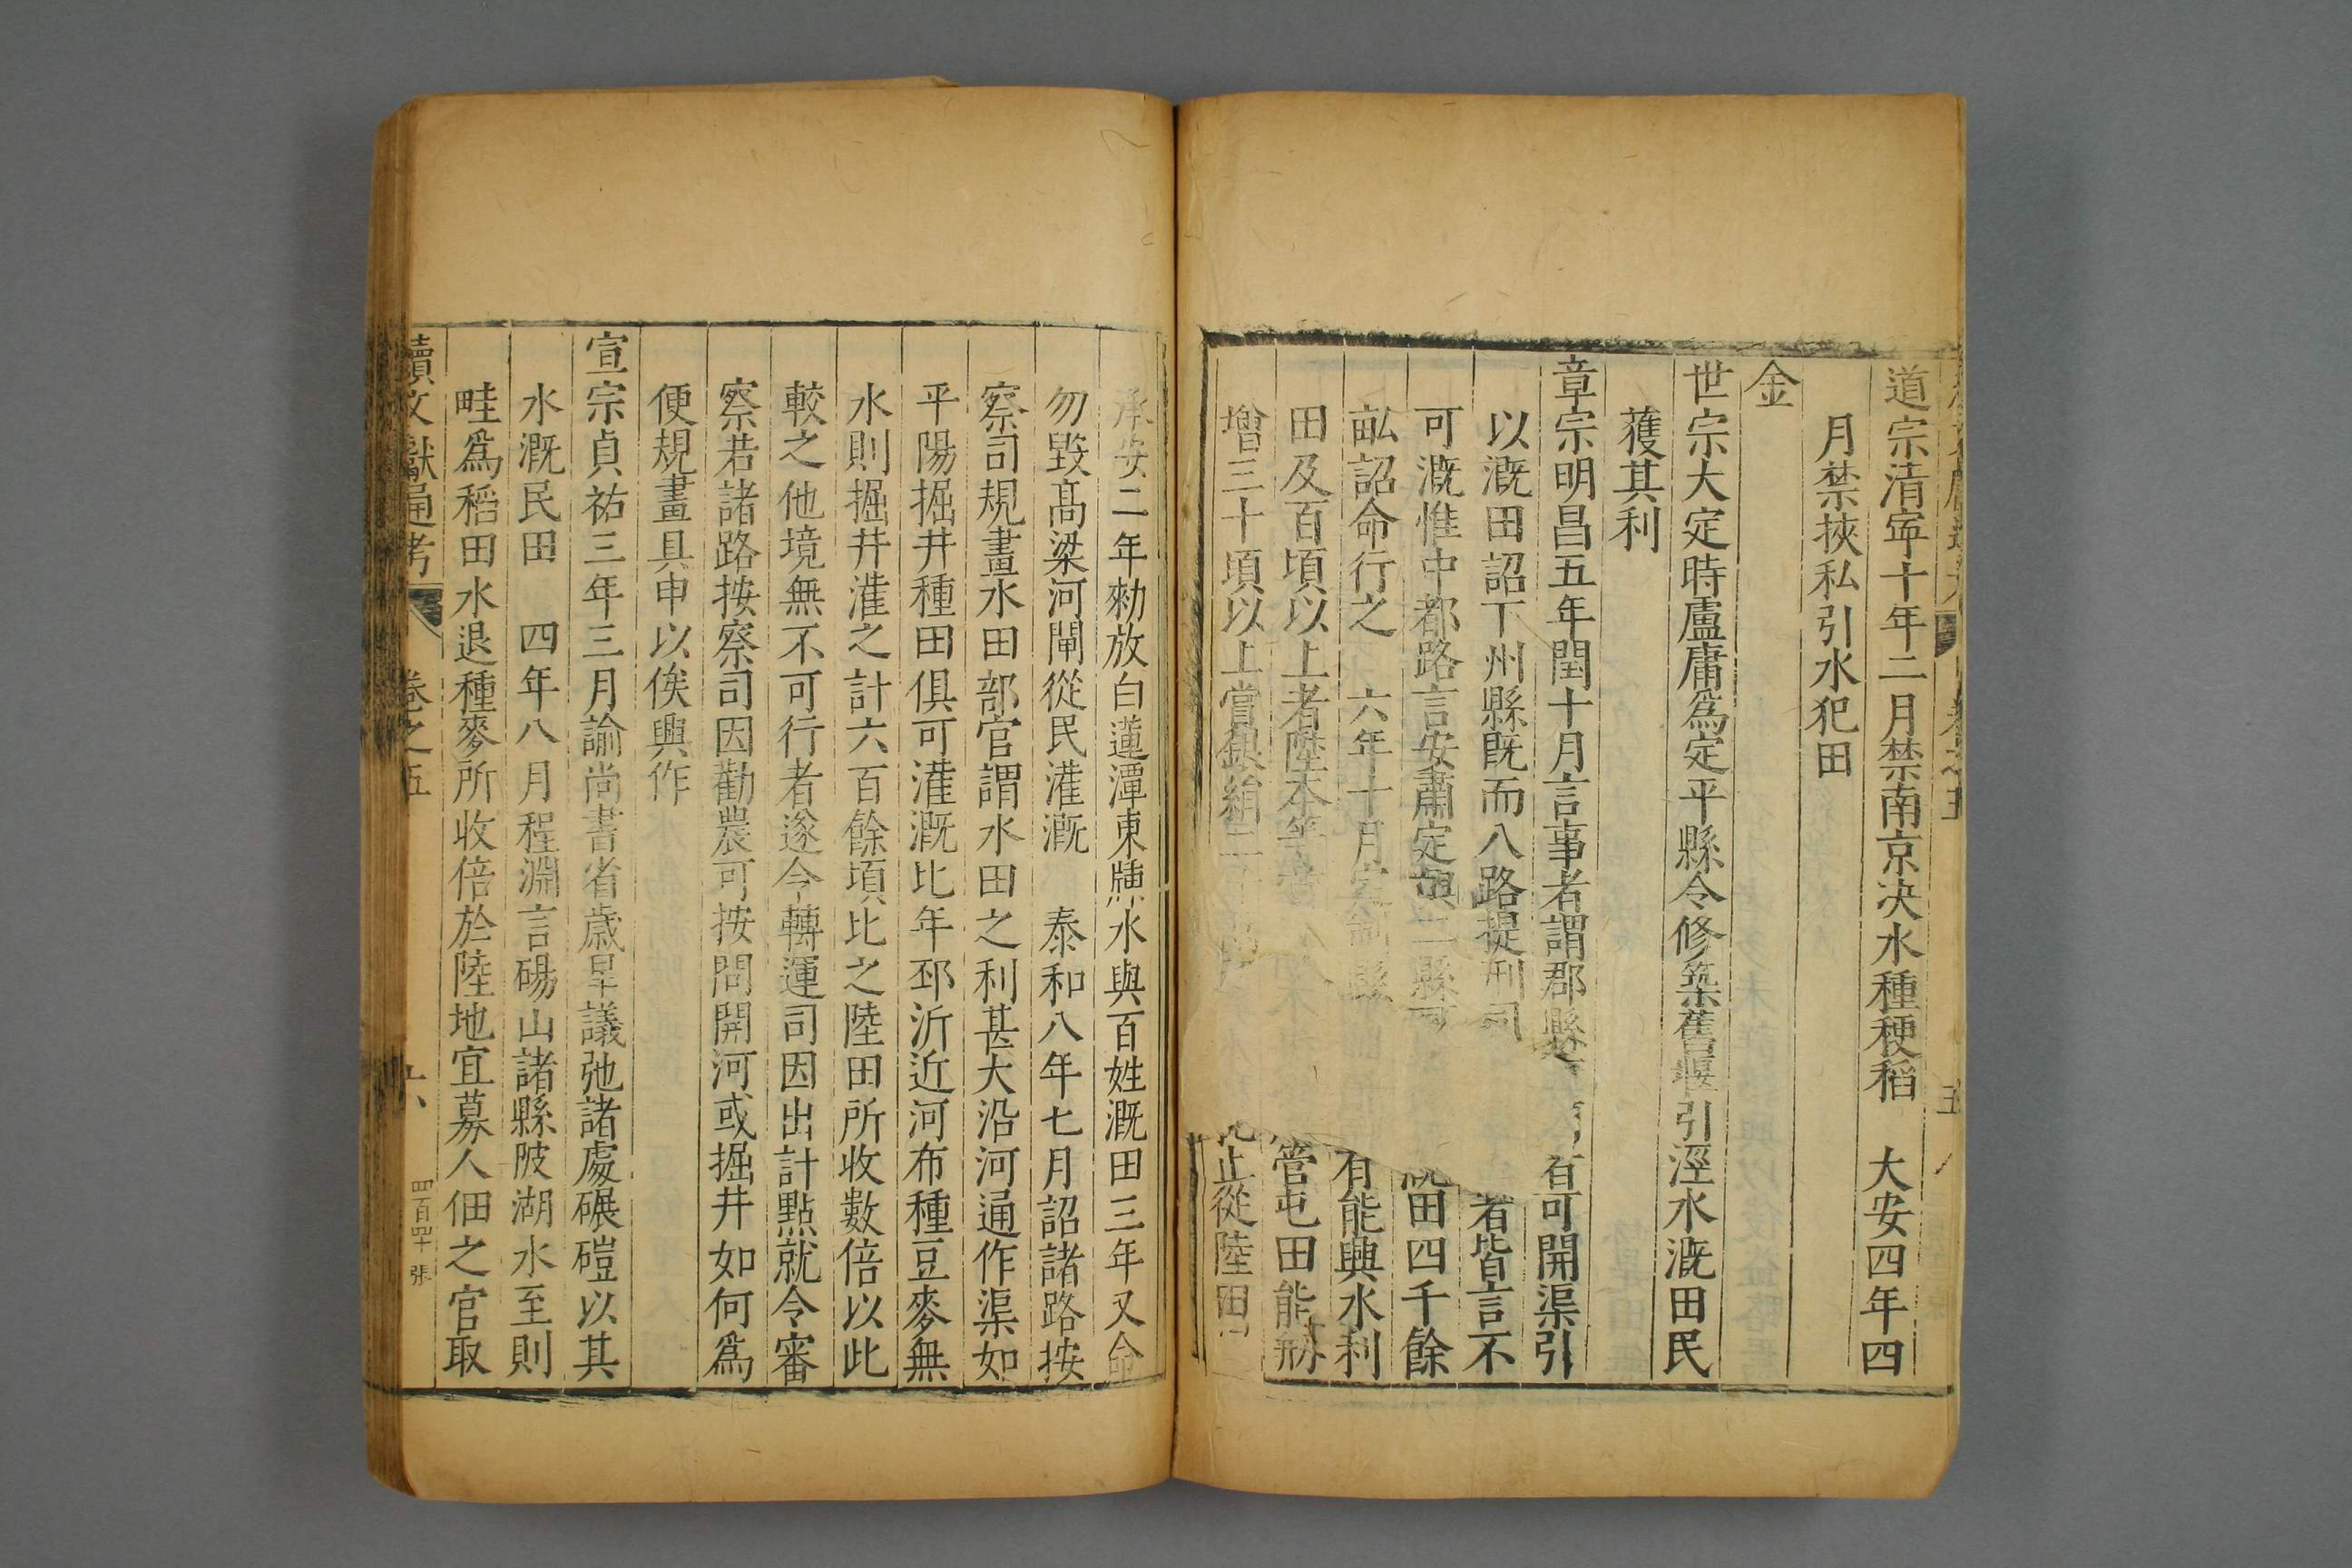 道宗清寧十年二月禁南京决水種稉稻　大安四年四
月禁挾私引水犯田
金
世宗大定時盧庸爲定平縣令修築舊堰引涇水溉田民
獲其利
章宗明昌五年閏十月言事者謂郡縣有可開渠引
以溉田詔下州縣旣而八路提刑司者皆言不
可溉惟中都路言安肅定興二縣可溉田四千餘
畝詔命行之　六年十月定制縣有能興水利
田及百頃以上者陞本等管屯田能刱
增三十頃以上賞銀絹二十止從陸田
承安二年勑放白蓮潭東牐水與百姓溉田三年又命
勿毀高梁河閘從民灌溉　泰和八年七月詔諸路按
察司規畫水田部官謂水田之利甚大沿河通作渠如
平陽掘井種田俱可灌溉比年邳沂近河布種豆麥無
水則掘井灌之計六百餘頃比之陸田所收數倍以此
較之他境無不可行者遂令轉運司因出計點就令審
察若諸路按察司因勸農可按問開河或掘井如何爲
便規畫具申以俟興作
宣宗貞祐三年三月諭尚書省歲旱議弛諸處碾磑以其
水溉民田　四年八月程淵言碭山諸縣陂湖水至則
畦爲稻田水退種麥所收倍於陸地宜募人佃之官取
續文獻通考　卷之五　六　四百四十張